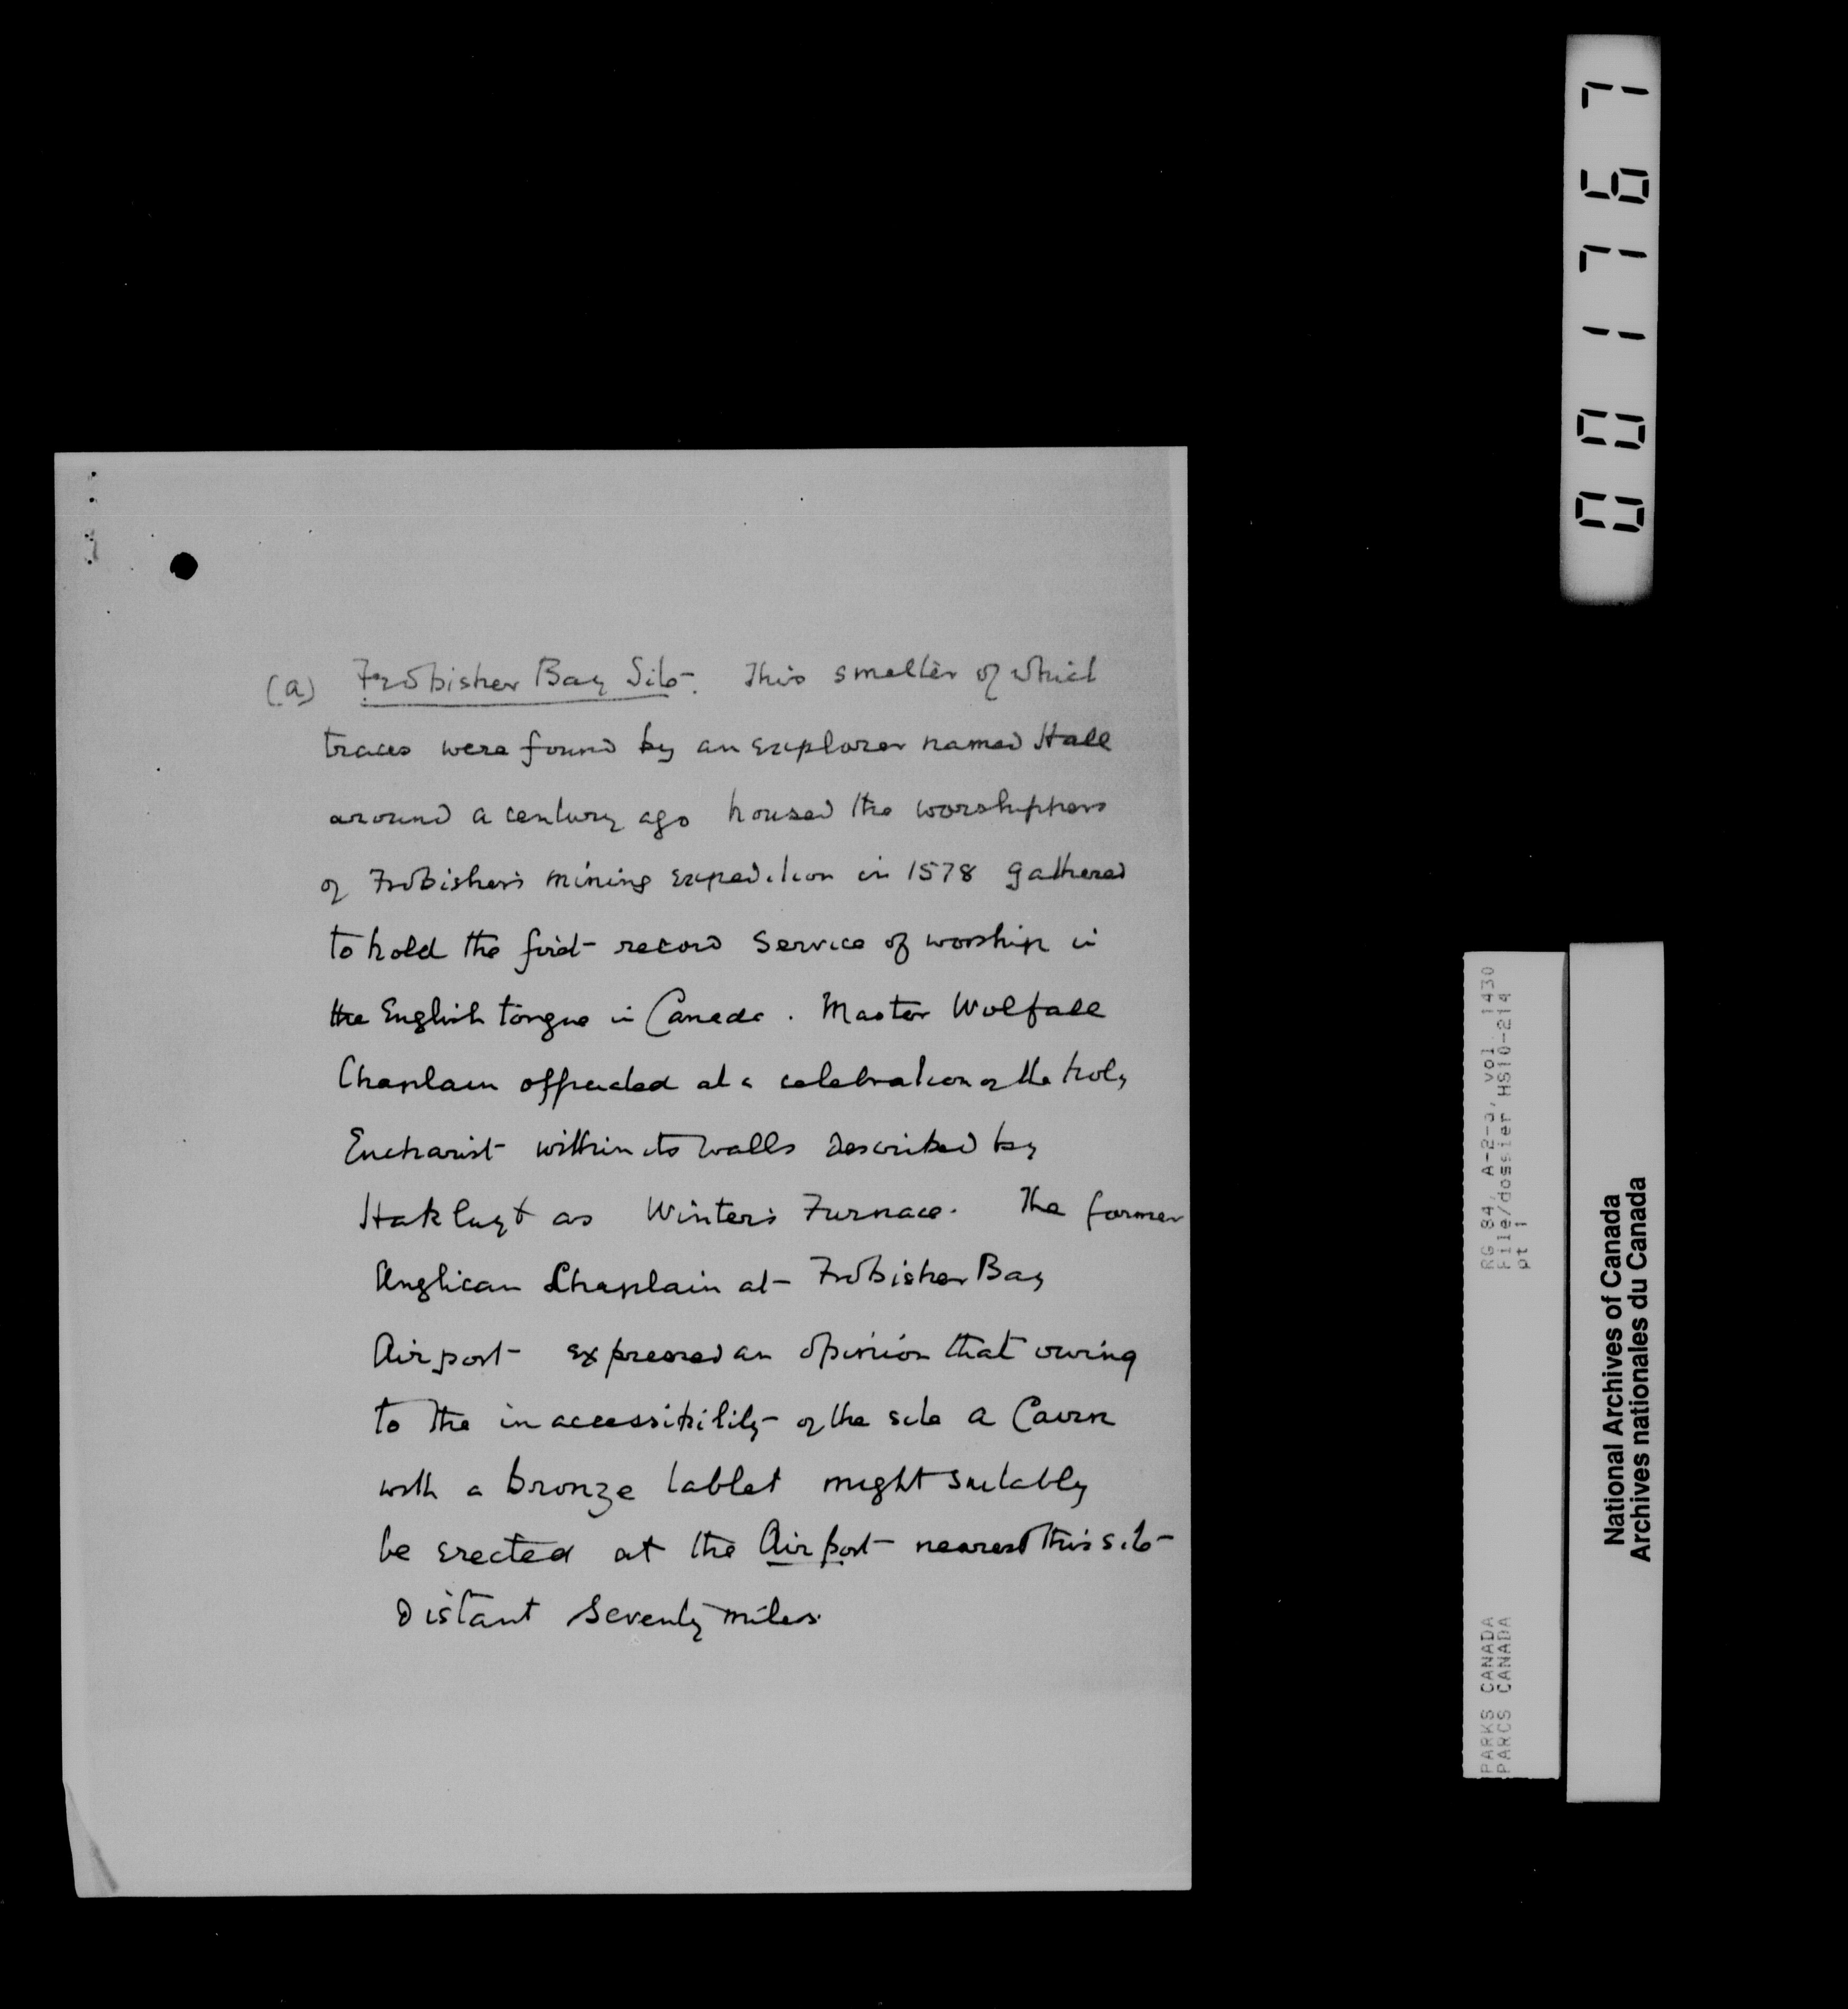 (a) Frobisher Bay Site. This smelter of which
traces were found by an explorer named Hall
around a century ago housed the worshippers
of Frobisher's mining expedition in 1578 gathered
to hold the first record service of worship in
the English tongue in Canada. Master Wolfall
Chaplain officiated at a celebration of the holy
Eucharist within its walls described by
Hakluyt as Winter's Furnace. The former
Anglican Chaplain at Frobisher Bay
Airport expressed an opinion that owing
to the inaccessibility of the site a Cairn
with a bronze tablet might suitably
be erected at the Airport nearest this site
distant seventy miles.
001767
RG 84, A-2-a, vol. 1430
File/dossier HS10-214
pt 1
PARKS CANADA
PARCS CANADA
National Archives of Canada
Archives nationales du Canada